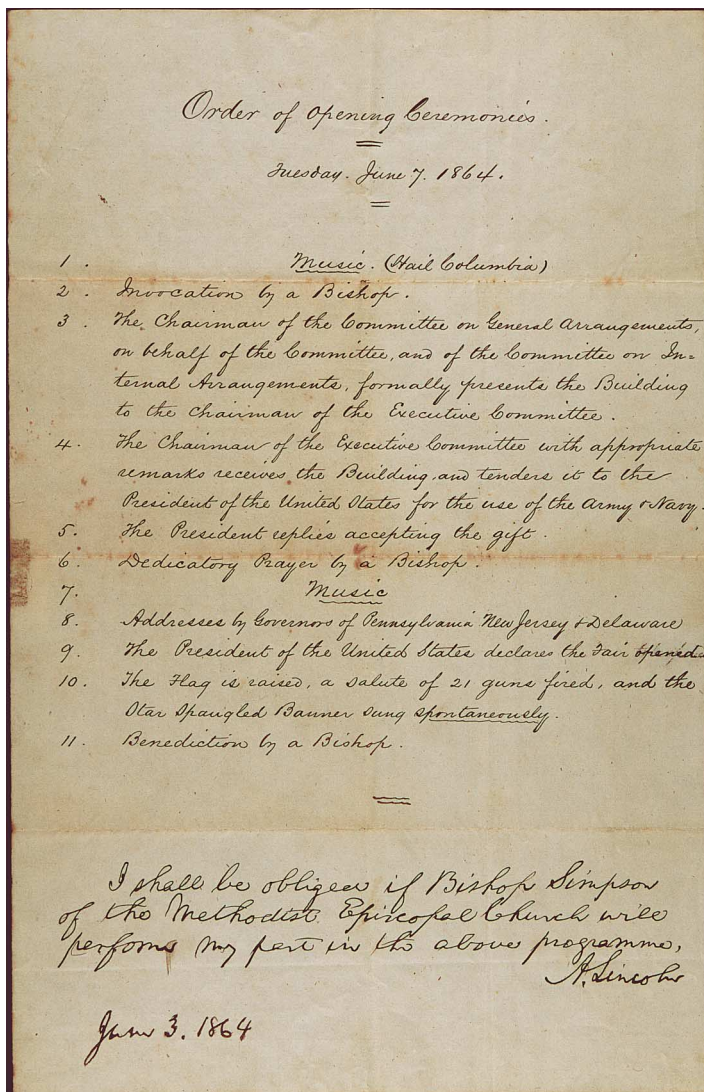 Order of Opening Ceremonies.
Tuesday. June 7. 1864.
1. Music. (Hail Columbia)
2. Invocation by a Bishop.
3. The Chairman of the Committee on General Arrangements,
on behalf of the Committee, and of the Committee on In=
ternal Arrangements, formally presents the Building
to the Chairman of the Executive Committee.
4. The Chairman of the Executive Committee with appropriate
remarks receives the Building, and tenders it to the
President of the United States for the use of the Army & Navy.
5. The President replies accepting the gift.
6. Dedicatory Prayer by a Bishop.
7. Music
8. Addresses by Governors of Pennsylvania New Jersey & Delaware
9. The President of the United States declares the Fair opened.
10. The Flag is raised, a salute of 21 guns fired, and the
Star Spangled Banner sung spontaneously.
11. Benediction by a Bishop.
I shall be obliged if Bishop Simpson
of the Methodist Episcopal Church will
perform my part in the above programme.
A. Lincoln
June 3. 1864